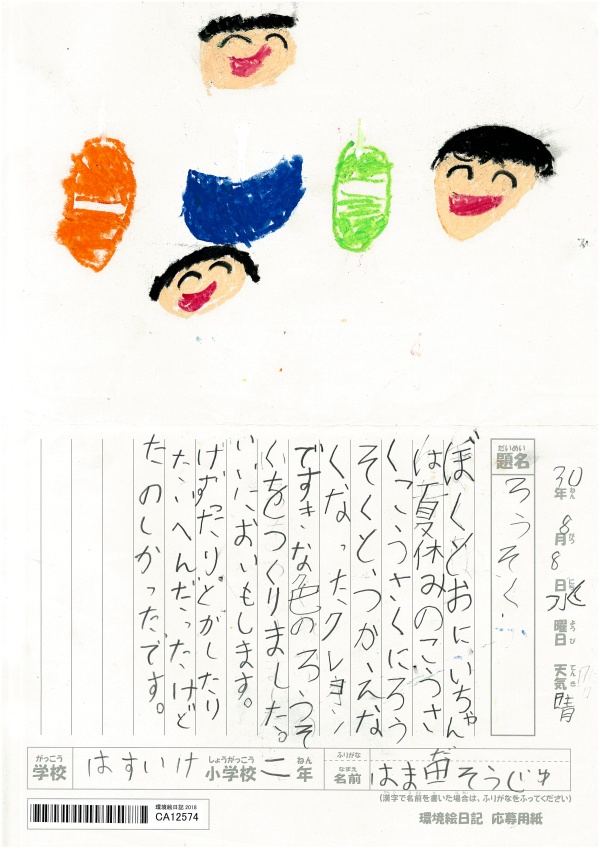 30年 8月8日 水曜日 天気 晴
ねん がつ にち ようび てんき
だいめい
題名
ろうそく
ぼくとおにいちゃん
は夏休みのこうさ
くこうさくにろう
そくと、つかえな
くなったクレヨン
ですきな色のろうそ
くをつくりました。
いいにおいもします。
けずったり。とかしたり
たいへんだったけど
たのしかったです。
がっこう しょうがっこう ねん
学校 はすいけ 小学校 二年
ふりがな だ
なまえ
名前 はま田そうじゅ
(漢字で名前を書いた場合は、ふりがなをふってください)
環境絵日記 2018
CA12574
環境絵日記 応募用紙